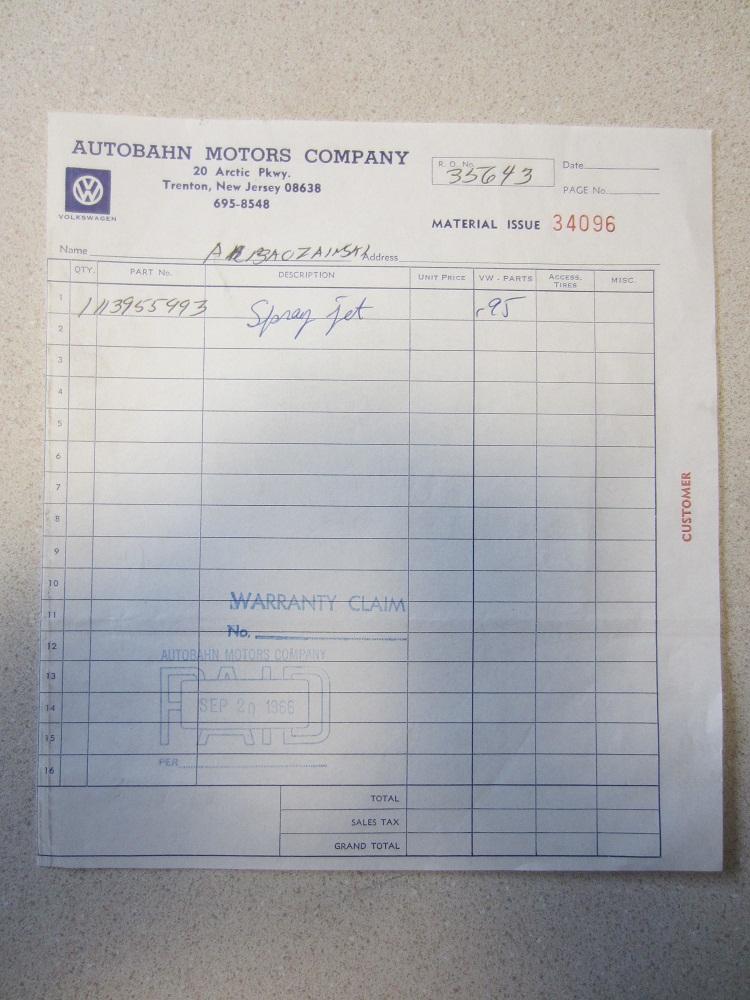 AUTOBAHN MOTORS COMPANY
20 Arctic Pkwy.
Trenton, New Jersey 08638
695-8548
VOLKSWAGEN
R. O. No. 35643
Date
PAGE No.
MATERIAL ISSUE 34096
Name Address
QTY. PART No. DESCRIPTION UNIT PRICE VW - PARTS ACCESS. TIRES MISC.
1 1 113955993 Spray jet .95
2
3
4
5
6
7
8
9
10
11
12
13
14
15
16
WARRANTY CLAIM
No.
AUTOBAHN MOTORS COMPANY
PAID
SEP 20 1966
PER
TOTAL
SALES TAX
GRAND TOTAL
CUSTOMER